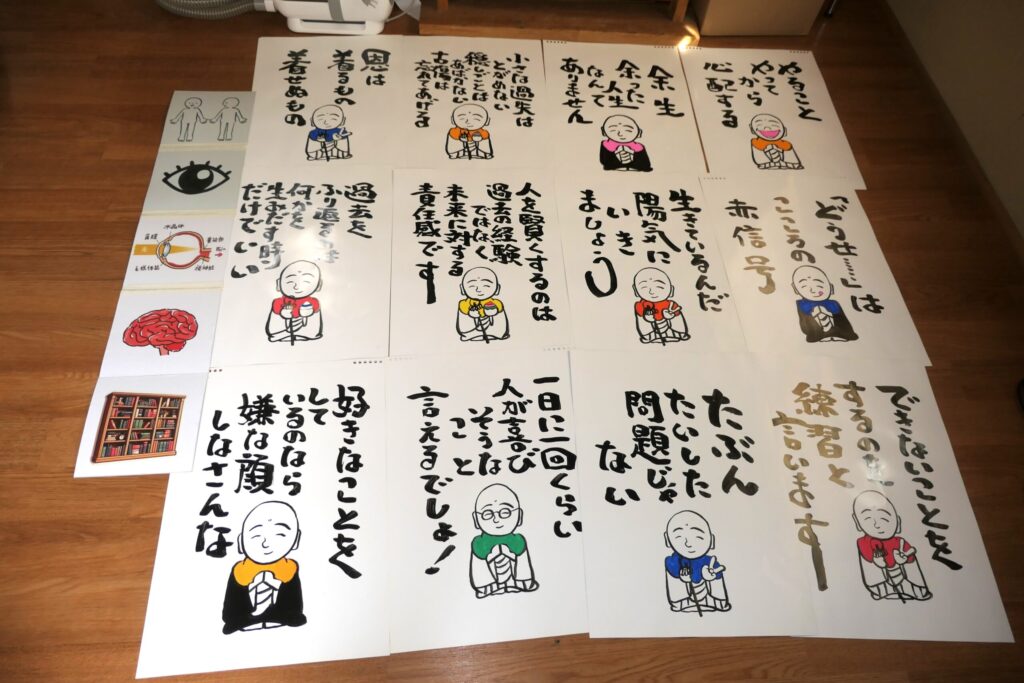 恩は
着るもの
着せぬもの
小さな過失は
とがめない
隠しごとは
あばかない
古傷は
忘れてあげる
余生
余った人生
なんて
ありません
やること
やって
から
心配する
水晶体
角膜
視神経
過去を
ふり返るのは
何かを
生みだす時
だけでいい
人を賢くするのは
過去の経験
ではなく
未来に対する
責任感です
生きているんだ
陽気に
いき
ましょう
「どうせ……」は
こころの
赤信号
好きなことを
して
いるのなら
嫌な顔
しなさんな
一日に一回くらい
人が喜び
そうな
こと
言えるでしょ!
たぶん
たいした
問題じゃ
ない
できないことを
するのを
練習と
言います